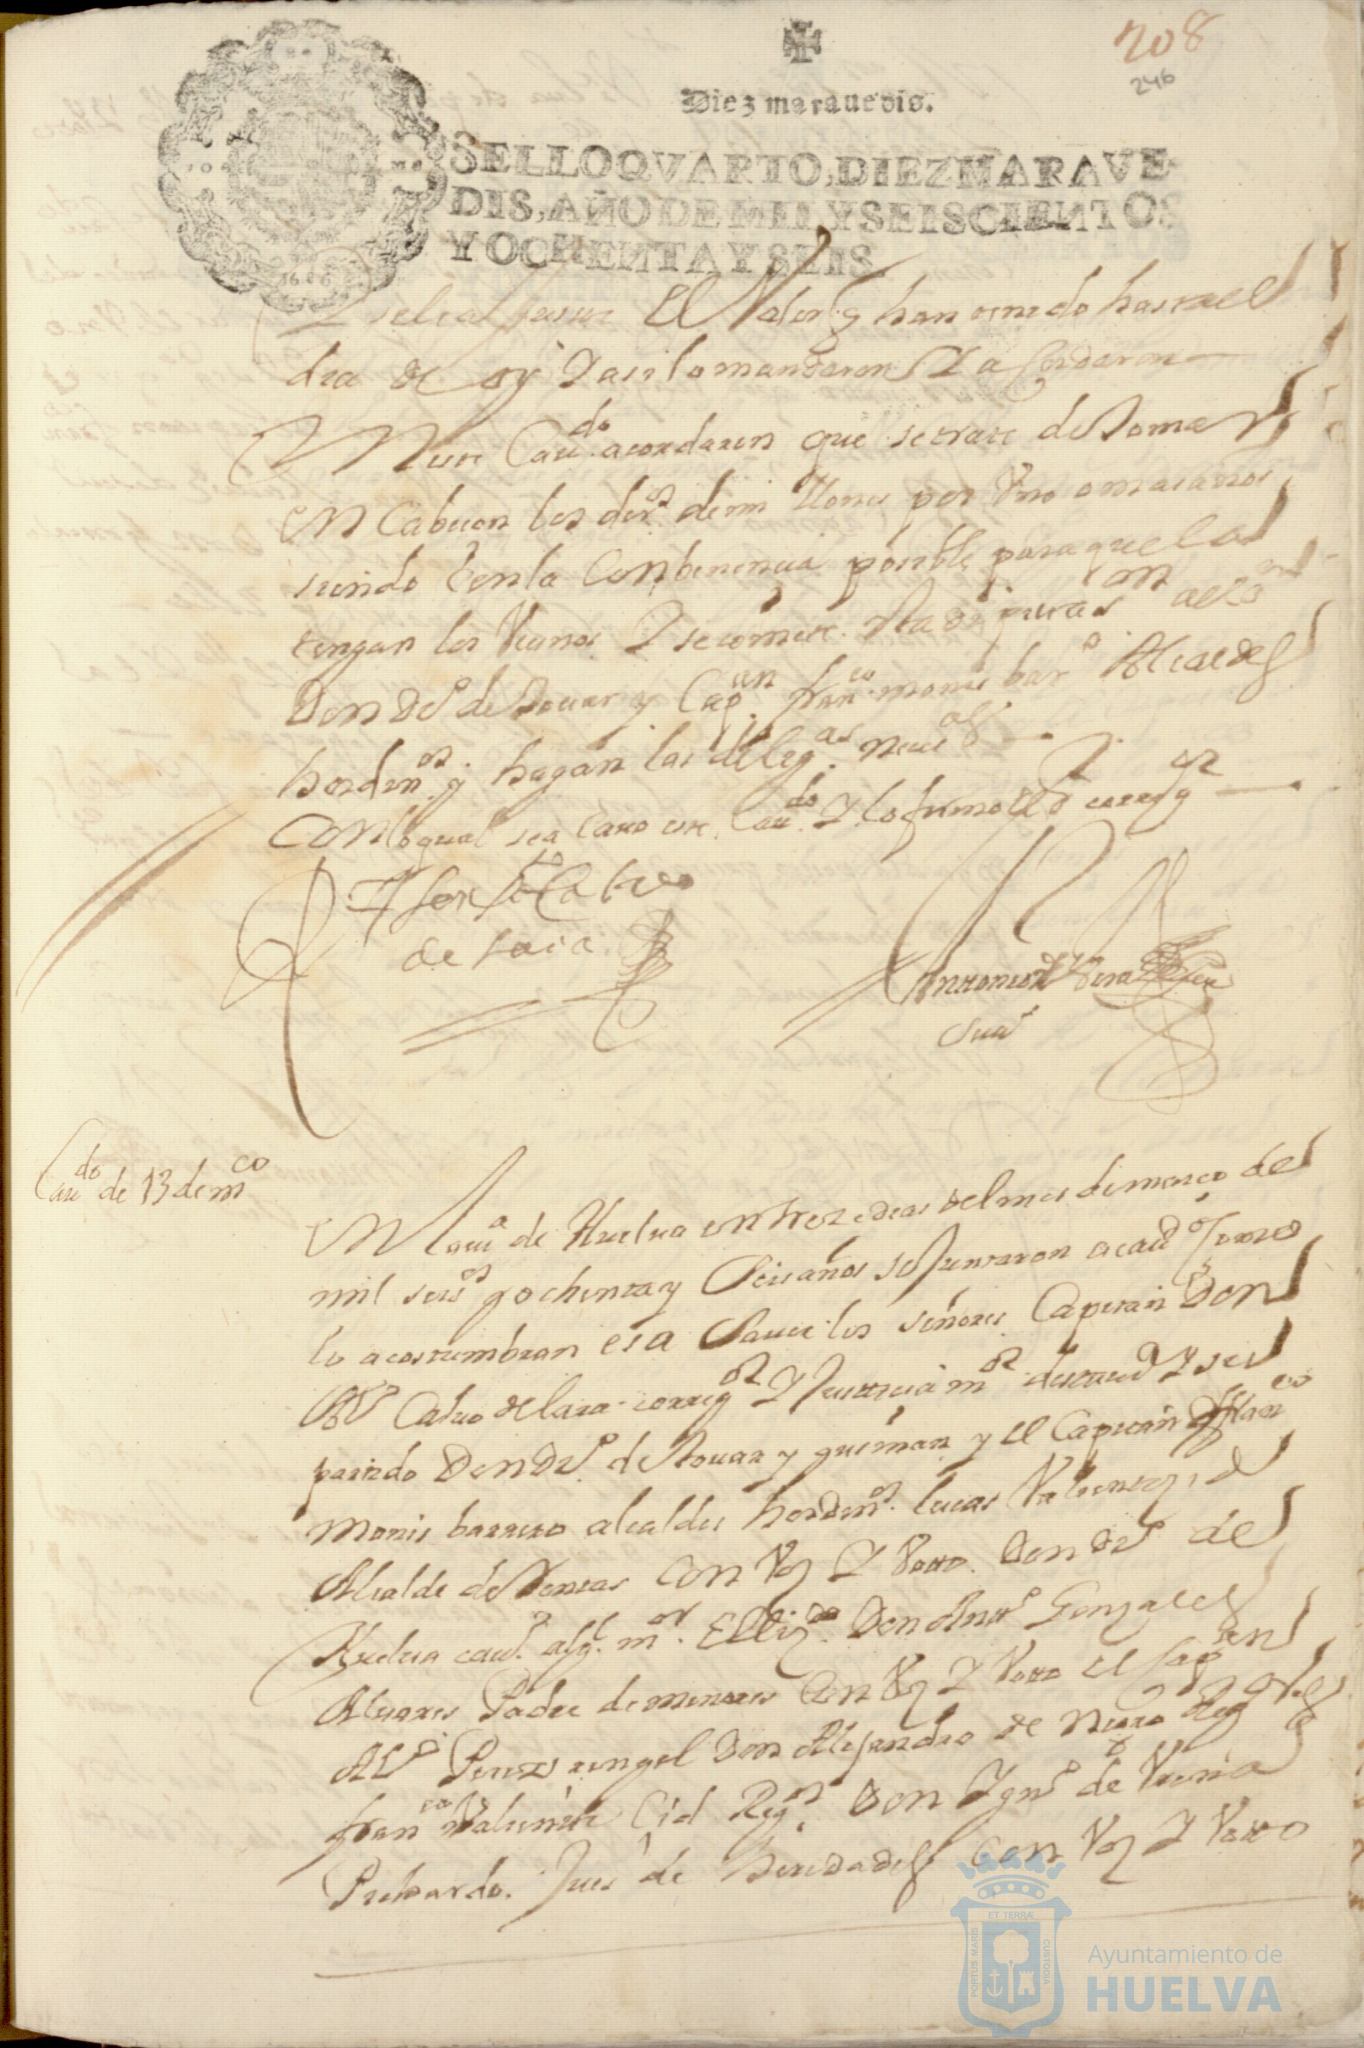 208
246
Diez marauedis.
SELLO QVARTO, DIEZ MARAVE
DIS, AÑO DE MIL Y SEISCIENTOS
Y OCHENTA Y SEIS.
1686
El Valor q han tenido hasta el
dia de oy Y asi lo mandaron Y acordaron
En este Caudo acordaron que se trate de tomar
en Cabeson los dros de millones por Uno o mas años
siendo con la Conbenencia posible para que la
tengan los Vecinos Y se comete
Don Do de Touar y Capan franco monis baro Alcaldes
hordinos q hagan las diligas neces
Con lo qual sea Cauo este Caudo Y lo firmo el corregor
Calvo
de Lara
Antonio de Vera
Caudo de 13 de mco
En la uia de Huelua en treze dias del mes de março de
mil seisos y ochenta y Seis años se Juntaron a caudo Como
lo acostumbran es a Sauer los señores Capitan Don
Alo Calvo de lara corregor Y Justicia mor desta ud Y su
partido Don Do de Touar y gusman y el Capitan franco
Monis barrero alcaldes hordinos lucas Valiente
Alcalde de Rentas Con Vos Y Voto Don Do de
Huelua alg mor El Lizdo Don Anto Gonzales
Aluares Padre de menores Con Vos Y Voto el Capan
Alo Peres rengel Don Alejandro de Negro Regres
franco Valiente Cid Regor Don Igno de
Juez de heredades Con Vos Y Voto
PORTUS MARIS
ET TERRÆ
CUSTODIA
Ayuntamiento de
HUELVA